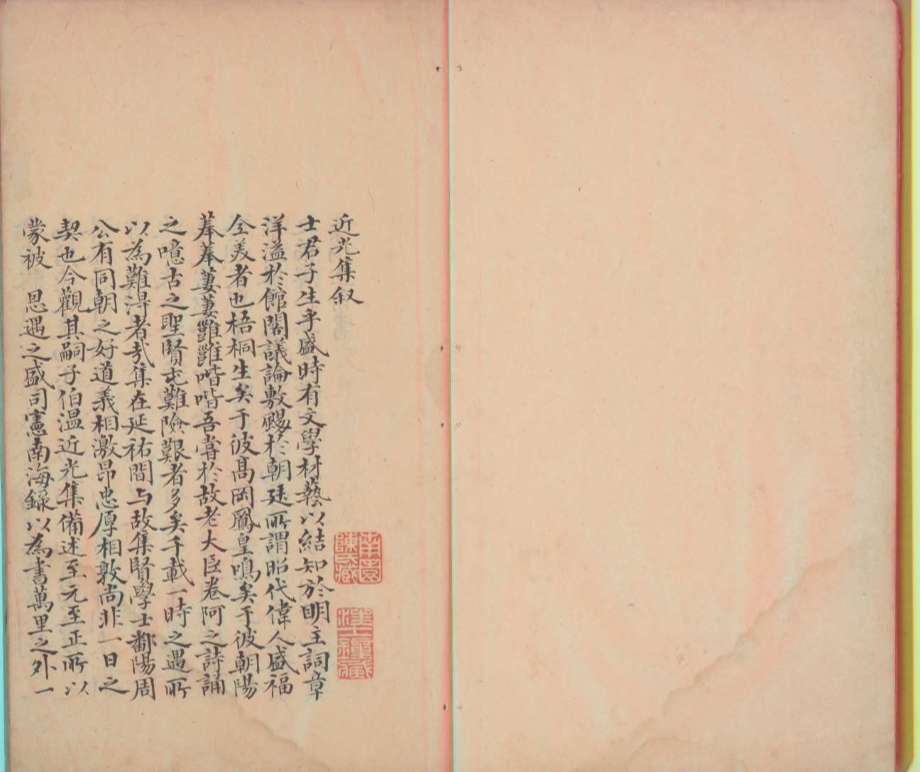 近光集叙
士君子生乎盛時有文學材藝以結知於明主詞章
洋溢於館閣議論敷颺於朝廷所謂昭代偉人盛福
全美者也梧桐生矣于彼髙岡鳳皇鳴矣于彼朝陽
菶菶萋萋雝雝喈喈吾嘗於故老大臣卷阿之詩誦
之噫古之聖賢屯難險艱者多矣千載一時之遇所
以為難淂者㢤集在延祐間与故集賢學士鄱陽周
公有同朝之好道義相激昂忠厚相敦尚非一日之
契也今觀其嗣子伯温近光集備述至元至正所以
蒙被 恩遇之盛司憲南海録以為書萬里之外一